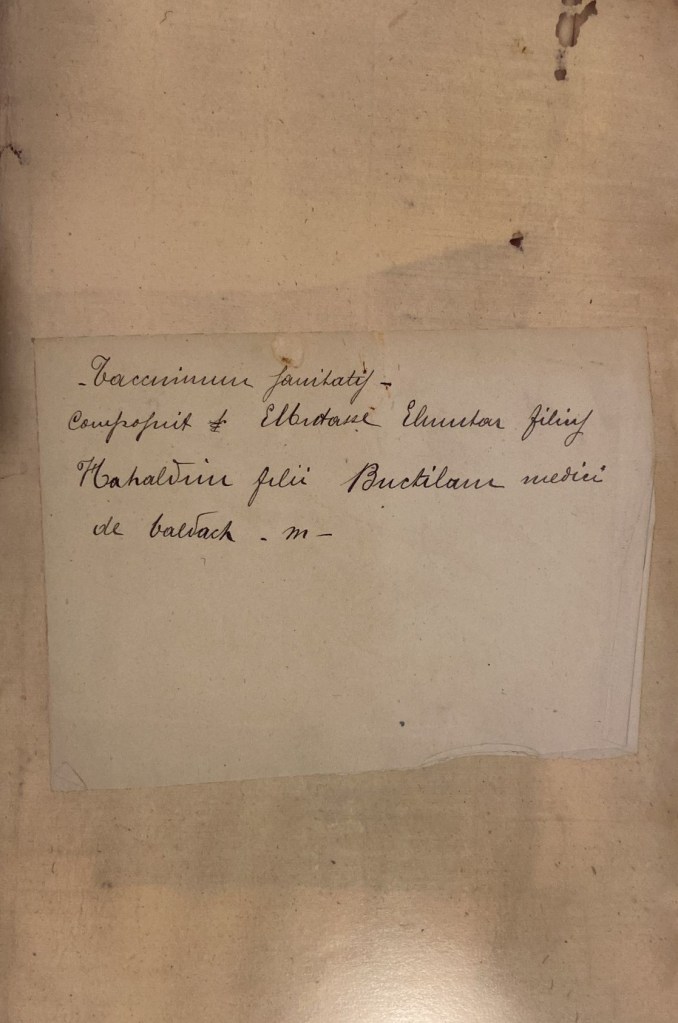 - Taccuinum sanitatis -
Composuit Elbutasse Elimitar filius
Hahaldim filii Buctilam medici
de baldach - m -